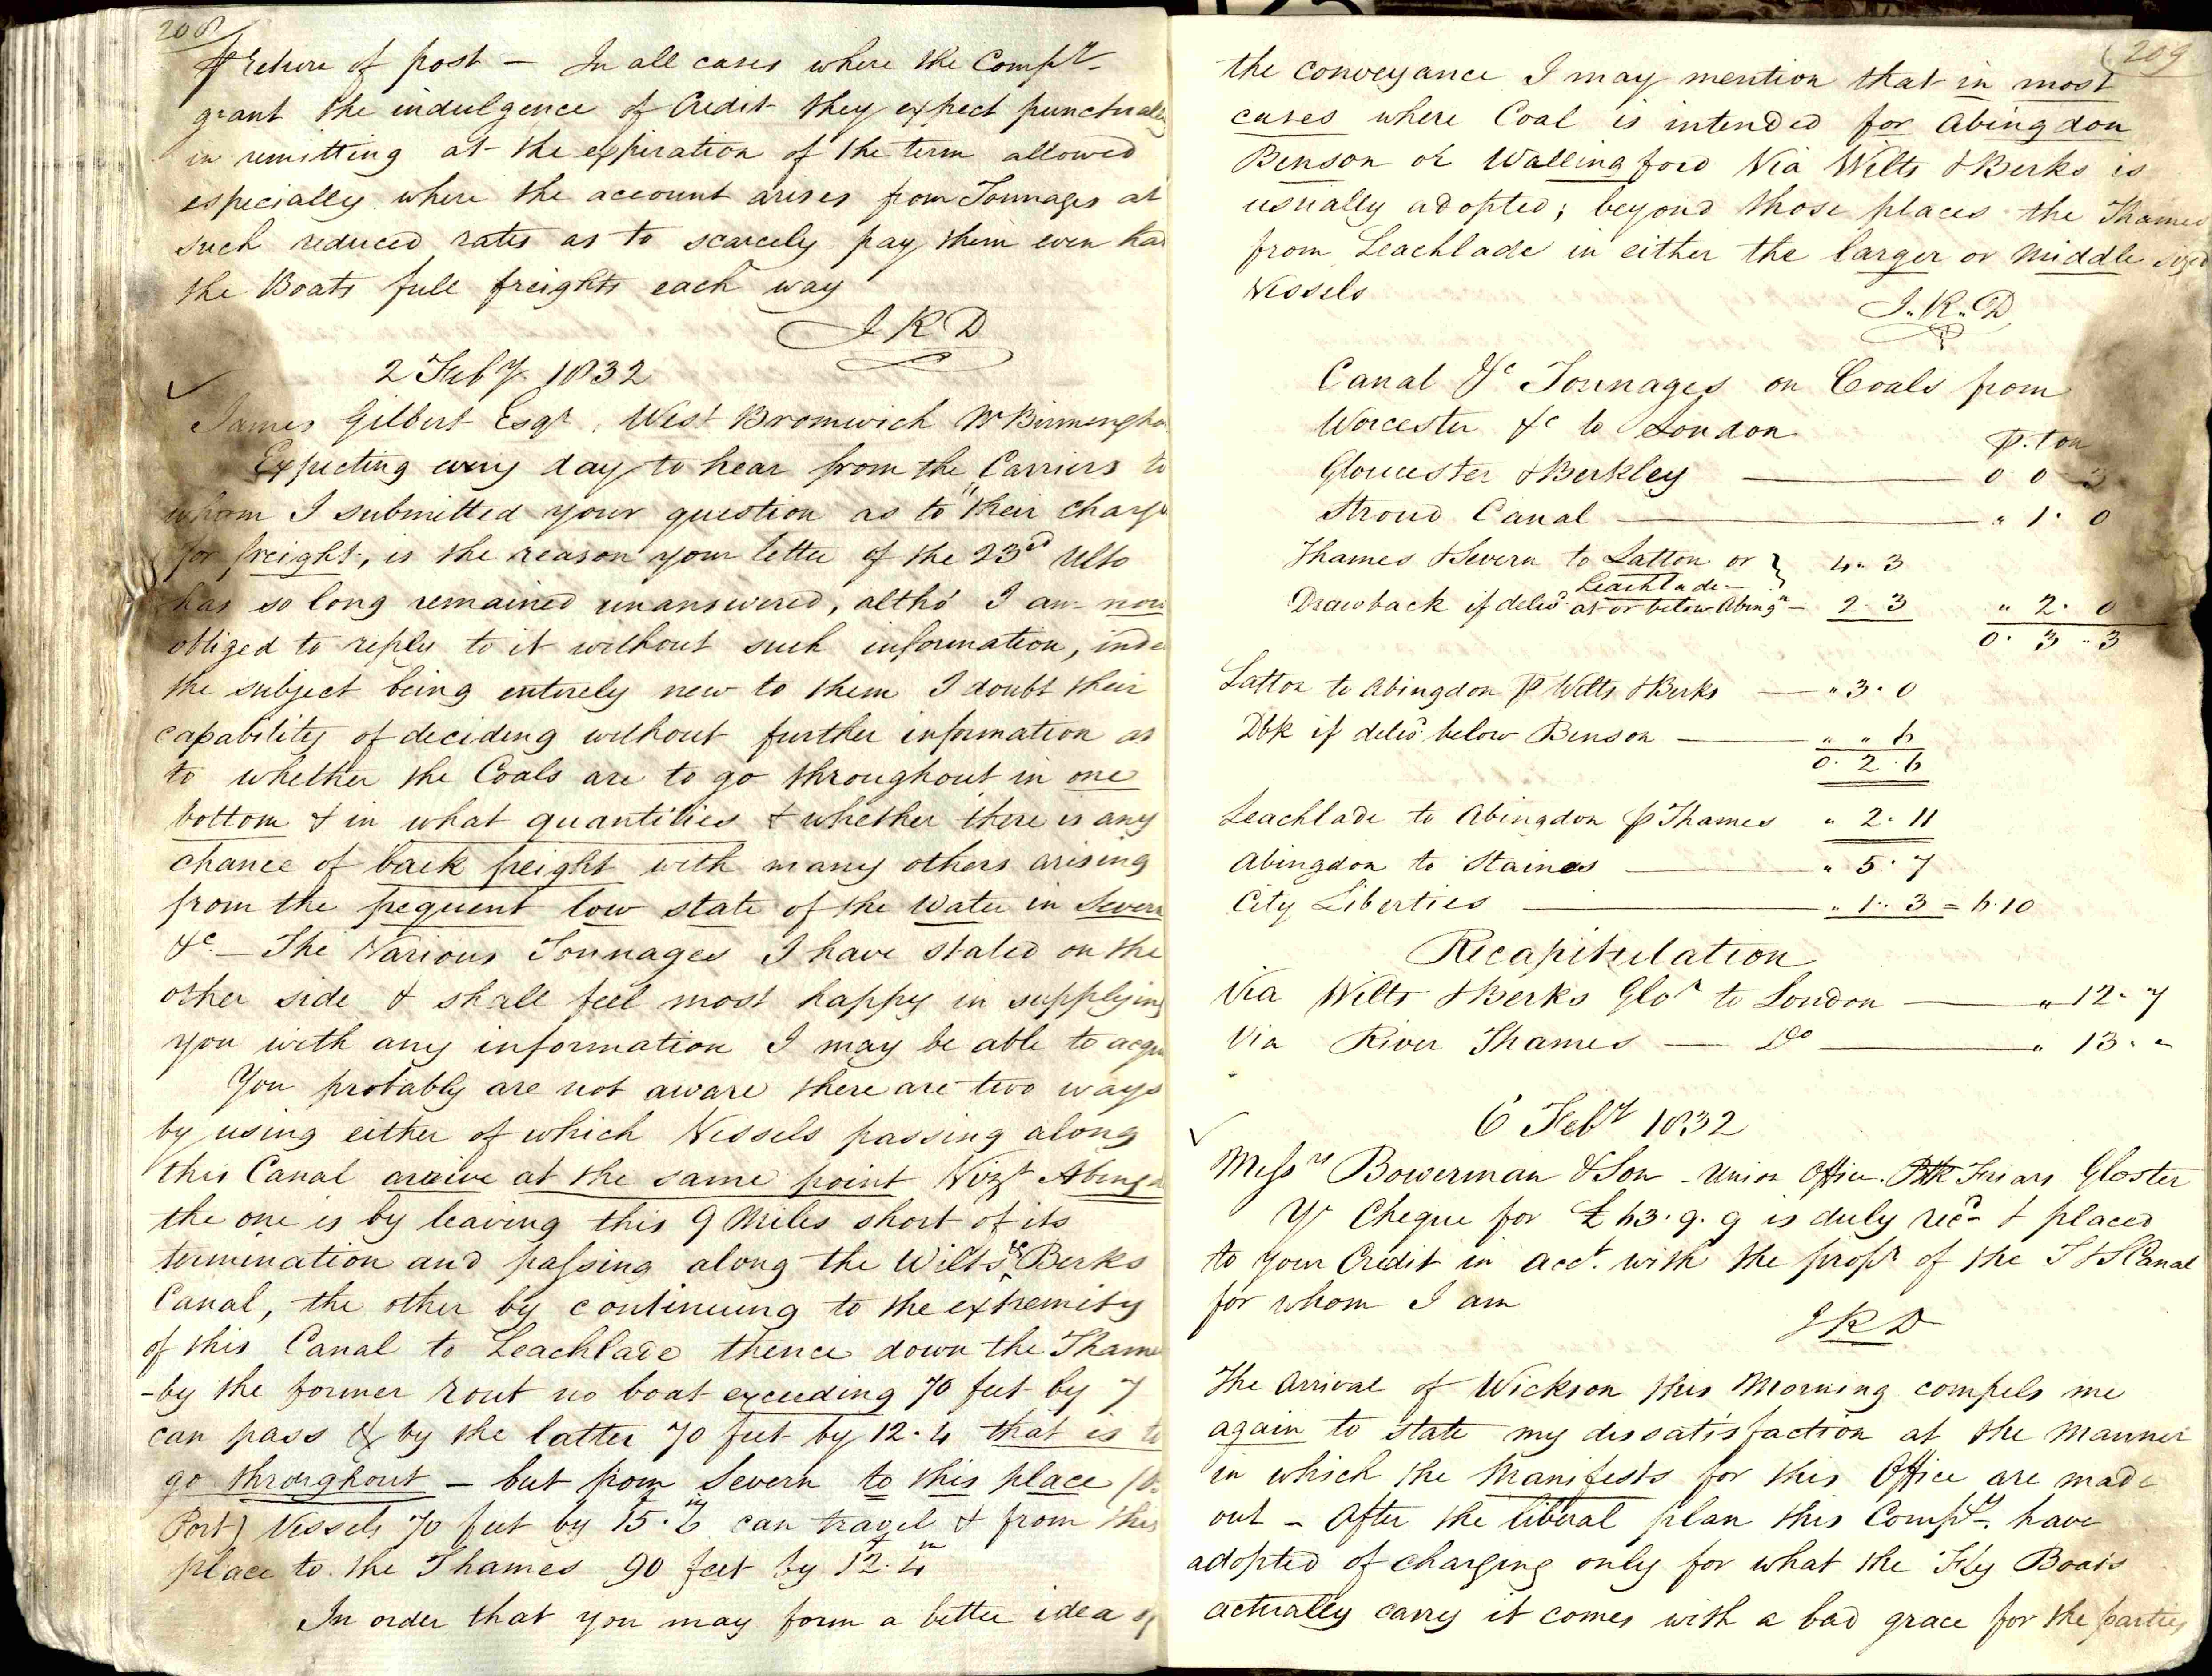 208
⅌ return of post – In all cases where the Compy
grant the indulgence of Credit they expect punctuality
in remitting at the expiration of the term allowed
especially where the account arises from Tonnages at
such reduced rates as to scarcely pay them even had
the Boats full freights each way
J R D
2 Feby 1832
James Gilbert Esqr, West Bromwich Nr Birmingha
Expecting every day to hear from the Carriers to
whom I submitted your question as to "their charge
for freight, is the reason your letter of the 23d Ulto
has so long remained unanswered, altho' I am now
obliged to reply to it without such information, inde
the subject being entirely new to them I doubt their
capability of deciding without further information as
to whether the Coals are to go throughout in one
bottom & in what quantities & whether there is any
chance of back freight with many others arising
from the frequent low state of the Water in Severn
&c – The Various Tonnages I have stated on the
other side & shall feel most happy in supplying
you with any information I may be able to acqu
You probably are not aware there are two ways
by using either of which Vessels passing along
this Canal arrive at the same point Vizt Abingd
the one is by leaving this 9 Miles short of its
termination and passing along the Wilts & Berks
Canal, the other by continuing to the extremity
of this Canal to Leachlade thence down the Thame
- by the former rout no boat exceeding 70 feet by 7
can pass & by the latter 70 feet by 12.4 that is to
go throughout – but from Severn to this place (
Port) Vessels 70 feet by 15.6 can travel & from this
place to the Thames 90 feet by 12.4
In order that you may form a better idea of
209
the conveyance I may mention that in most
cases where Coal is intended for Abingdon
Benson or Wallingford Via Wilts & Berks is
usually adopted; beyond those places the Thames
from Leachlade in either the larger or middle sized
Vessels
J.R.D
Canal &c Tonnages on Coals from
Worcester &c to London ⅌.ton
Gloucester & Berkley — 0 0 3
Stroud Canal — " 1. 0
Thames & Severn to Latton or } 4. 3
Leachlade
Drawback if delivd at or below Abingn – 2. 3 " 2. 0
0. 3 .. 3
Latton to Abingdon ⅌ Wilts & Berks — " 3. 0
Dbk if delivd below Benson — " " 6
0. 2. 6
Leachlade to Abingdon ⅌ Thames " 2. 11
Abingdon to Staines — " 5. 7
City Liberties — " 1. 3 = 6.10
Recapitulation
Via Wilts & Berks Glor to London — " 12. 7
Via River Thames — Do — " 13. "
6 Feby 1832
Messrs Bowerman & Son - Union Office. Blk Friars Gloster
Yr Cheque for £63.9.9 is duly recd & placed
to your Credit in acct. with the propr of the T & S Canal
for whom I am
J R D
The arrival of Wickson this Morning compels me
again to state my dissatisfaction at the Manner
in which the Manifests for this Office are made
out – After the liberal plan this Compy have
adopted of charging only for what the Fly Boats
actually carry it comes with a bad grace for the parties